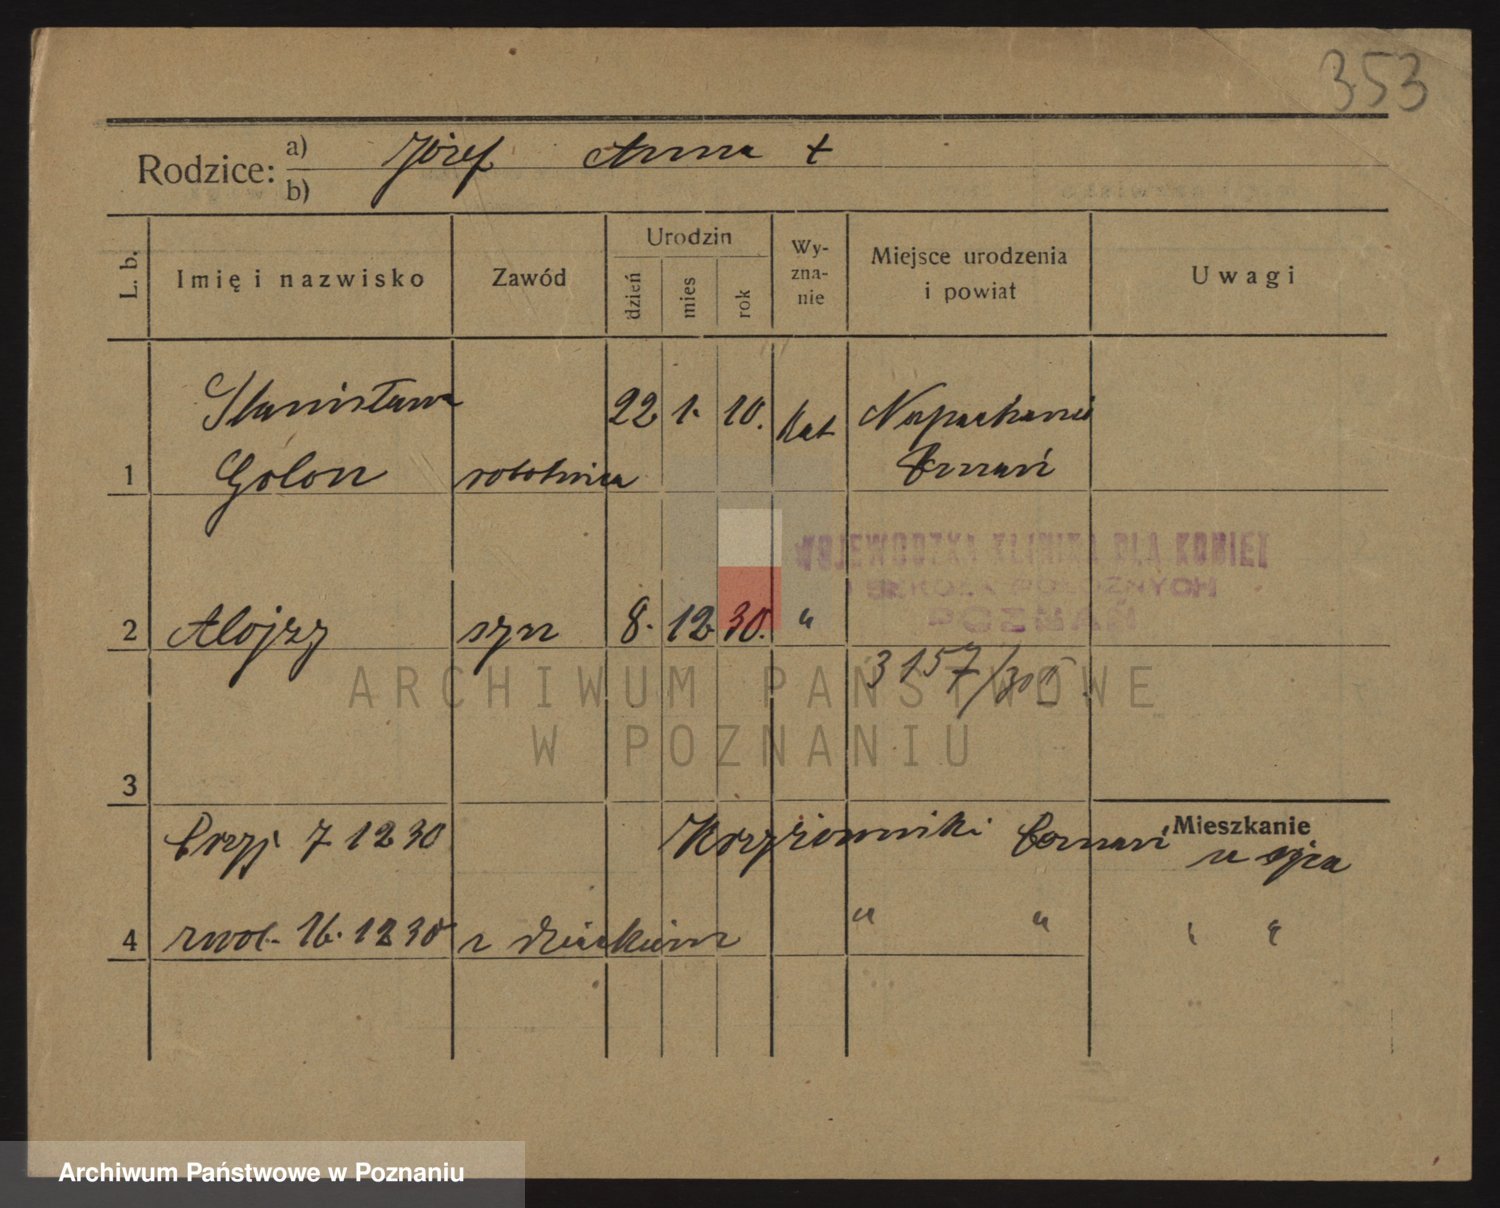 353
Rodzice: a) Józef Anna †
b)
L. b. Imię i nazwisko Zawód Urodzin dzień mies rok Wy-zna-nie Miejsce urodzenia i powiat Uwagi
Stanisława 22 1. 10. Kat Napachanie
1 Golon robotnica Poznań
WOJEWODZKA KLINIKA DLA KOBIET
I SZKOŁA POŁOŻNYCH
POZNAŃ
2 Alojzy syn 8. 12. 30. "
3157/30
ARCHIWUM PAŃSTWOWE
W POZNANIU
3
Mieszkanie
Przyj 7 12 30 Krzyżowniki Poznań u ojca
4 zwol. 16. 12 30 z dzieckiem " " " "
Archiwum Państwowe w Poznaniu